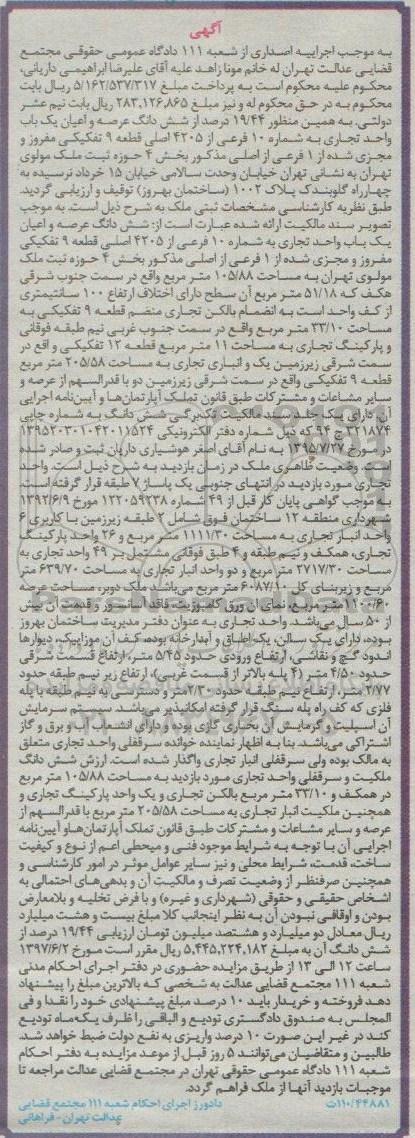 آگهی
به موجب اجراییه اصداری از شعبه ۱۱۱ دادگاه عمومی حقوقی مجتمع
قضایی عدالت تهران له خانم مونا زاهد علیه آقای علیرضا ابراهیمی داریانی،
محکوم علیه محکوم است به پرداخت مبلغ ۵/۱۶۲/۵۳۷/۳۱۷ ریال بابت
محکوم به در حق محکوم له و نیز مبلغ ۲۸۳,۱۲۶,۸۶۵ ریال بابت نیم عشر
دولتی. به همین منظور ۱۹/۴۴ درصد از شش دانگ عرصه و اعیان یک باب
واحد تجاری به شماره ۱۰ فرعی از ۴۲۰۵ اصلی قطعه ۹ تفکیکی مفروز و
مجزی شده از ۱ فرعی از اصلی مذکور بخش ۴ حوزه ثبت ملک مولوی
تهران به نشانی تهران خیابان وحدت سالامی خیابان ۱۵ خرداد نرسیده به
چهارراه گلوبندک پلاک ۱۰۰۲ (ساختمان بهروز) توقیف و ارزیابی گردید.
طبق نظریه کارشناسی مشخصات ثبتی ملک به شرح ذیل است. به موجب
تصویر سند مالکیت ارائه شده عبارت است از: شش دانگ عرصه و اعیان
یک باب واحد تجاری به شماره ۱۰ فرعی از ۴۲۰۵ اصلی قطعه ۹ تفکیکی
مفروز و مجزی شده از ۱ فرعی از اصلی مذکور بخش ۴ حوزه ثبت ملک
مولوی تهران به مساحت ۱۰۵/۸۸ متر مربع واقع در سمت جنوب شرقی
همکف که ۵۱/۱۸ متر مربع آن سطح دارای اختلاف ارتفاع ۱۰۰ سانتیمتری
از کف واحد است به انضمام بالکن تجاری منضم قطعه ۹ تفکیکی به
مساحت ۳۳/۱۰ متر مربع واقع در سمت جنوب غربی نیم طبقه فوقانی
و پارکینگ تجاری به مساحت ۱۱ متر مربع قطعه ۱۲ تفکیکی واقع در
سمت شرقی زیرزمین یک و انباری تجاری به مساحت ۲۰۵/۵۸ متر مربع
قطعه ۹ تفکیکی واقع در سمت شرقی زیرزمین دو با قدرالسهم از عرصه و
سایر مشاعات و مشترکات طبق قانون تملک آپارتمان‌ها و آیین‌نامه اجرایی
آن دارای یک جلد سند مالکیت تک‌برگی شش دانگ به شماره چاپی
۲۲۱۸۷۴ ج ۹۴ که ذیل شماره دفتر الکترونیکی ۱۳۹۵۲۰۳۰۱۰۴۲۰۱۱۵۲۴
در مورخ ۱۳۹۵/۷/۲۷ به نام آقای اصغر هوشیاری داریان ثبت و صادر شده
است. وضعیت ظاهری ملک در زمان بازدید به شرح ذیل است. واحد
تجاری مورد بازدید در انتهای جنوبی یک پاساژ ۷ طبقه قرار گرفته است.
به موجب گواهی پایان کار قبل از ۴۹ شماره ۱۲۲۰۵۹۲۳۸ مورخ ۱۳۹۲/۶/۹
شهرداری منطقه ۱۲ ساختمان فوق شامل ۲ طبقه زیرزمین با کاربری ۶
واحد انبار تجاری به مساحت ۱۱۱۱/۳۰ متر مربع و ۲۶ واحد پارکینگ
تجاری، همکف و نیم طبقه و ۴ طبق فوقانی مشتمل بر ۴۹ واحد تجاری به
مساحت ۲۷۱۷/۳۰ متر مربع و دو واحد انبار تجاری به مساحت ۶۳۹/۷۰ متر
مربع و زیربنای کل ۶۰۸۷/۱۰ متر مربع می‌باشد ملک دوبر، مساحت عرصه
۱۱۰۰/۶۰ متر مربع، نمای آن ورق کامپوزیت، فاقد آسانسور و قدمت آن بیش
از ۵۰ سال می‌باشد. واحد تجاری به عنوان دفتر مدیریت ساختمان بهروز
بوده، دارای یک سالن، یک اطاق و آبدارخانه بوده، کف آن موزاییک، دیوارها
اندود گچ و نقاشی، ارتفاع ورودی حدود ۵/۴۵ متر، ارتفاع قسمت شرقی
حدود ۴/۵۰ متر (۴ پله بالاتر از قسمت غربی)، ارتفاع زیر نیم طبقه حدود
۲/۷۷ متر، ارتفاع نیم طبقه حدود ۲/۳۰ متر و دسترسی به نیم طبقه با پله
فلزی که کف راه پله سنگ قرار گرفته امکانپذیر می‌باشد. سیستم سرمایش
آن اسپلیت و گرمایش آن بخاری گازی بوده و دارای انشعاب آب و برق و گاز
اشتراکی می‌باشد. بنا به اظهار نماینده خوانده سرقفلی واحد تجاری متعلق
به مالک بوده ولی سرقفلی انبار تجاری واگذار شده است. ارزش شش دانگ
ملکیت و سرقفلی واحد تجاری مورد بازدید به مساحت ۱۰۵/۸۸ متر مربع
در همکف و ۳۳/۱۰ متر مربع بالکن تجاری و یک واحد پارکینگ تجاری و
همچنین ملکیت انبار تجاری به مساحت ۲۰۵/۵۸ متر مربع با قدرالسهم از
عرصه و سایر مشاعات و مشترکات طبق قانون تملک آپارتمان‌ها و آیین‌نامه
اجرایی آن با توجه به شرایط موجود فنی و میحطی اعم از نوع و کیفیت
ساخت، قدمت، شرایط محلی و نیز سایر عوامل موثر در امور کارشناسی و
همچنین صرفنظر از وضعیت تصرف و مالکیت آن و بدهی‌های احتمالی به
اشخاص حقیقی و حقوقی (شهرداری و غیره) و با فرض تخلیه و بلامعارض
بودن و اوقافی نبودن آن به نظر اینجانب کلا مبلغ بیست و هشت میلیارد
ریال معادل دو میلیارد و هشتصد میلیون تومان ارزیابی ۱۹/۴۴ درصد از
شش دانگ آن به مبلغ ۵,۴۴۵,۲۲۴,۱۸۲ ریال مقرر است مورخ ۱۳۹۷/۶/۲
ساعت ۱۲ الی ۱۳ از طریق مزایده حضوری در دفتر اجرای احکام مدنی
شعبه ۱۱۱ مجتمع قضایی عدالت به شخصی که بالاترین مبلغ را پیشنهاد
دهد فروخته و خریدار باید ۱۰ درصد مبلغ پیشنهادی خود را نقدا و فی
المجلس به صندوق دادگستری تودیع و الباقی را ظرف یک‌ماه تودیع
کند در غیر این صورت ۱۰ درصد واریزی به نفع دولت ضبط خواهد شد.
طالبین و متقاضیان می‌توانند ۵ روز قبل از موعد مزایده به دفتر احکام
شعبه ۱۱۱ دادگاه عمومی حقوقی تهران در مجتمع قضایی عدالت مراجعه تا
موجبات بازدید آنها از ملک فراهم گردد.
۱۱۰/۴۴۸۸۱ت دادورز اجرای احکام شعبه ۱۱۱ مجتمع قضایی
عدالت تهران - فراهانی